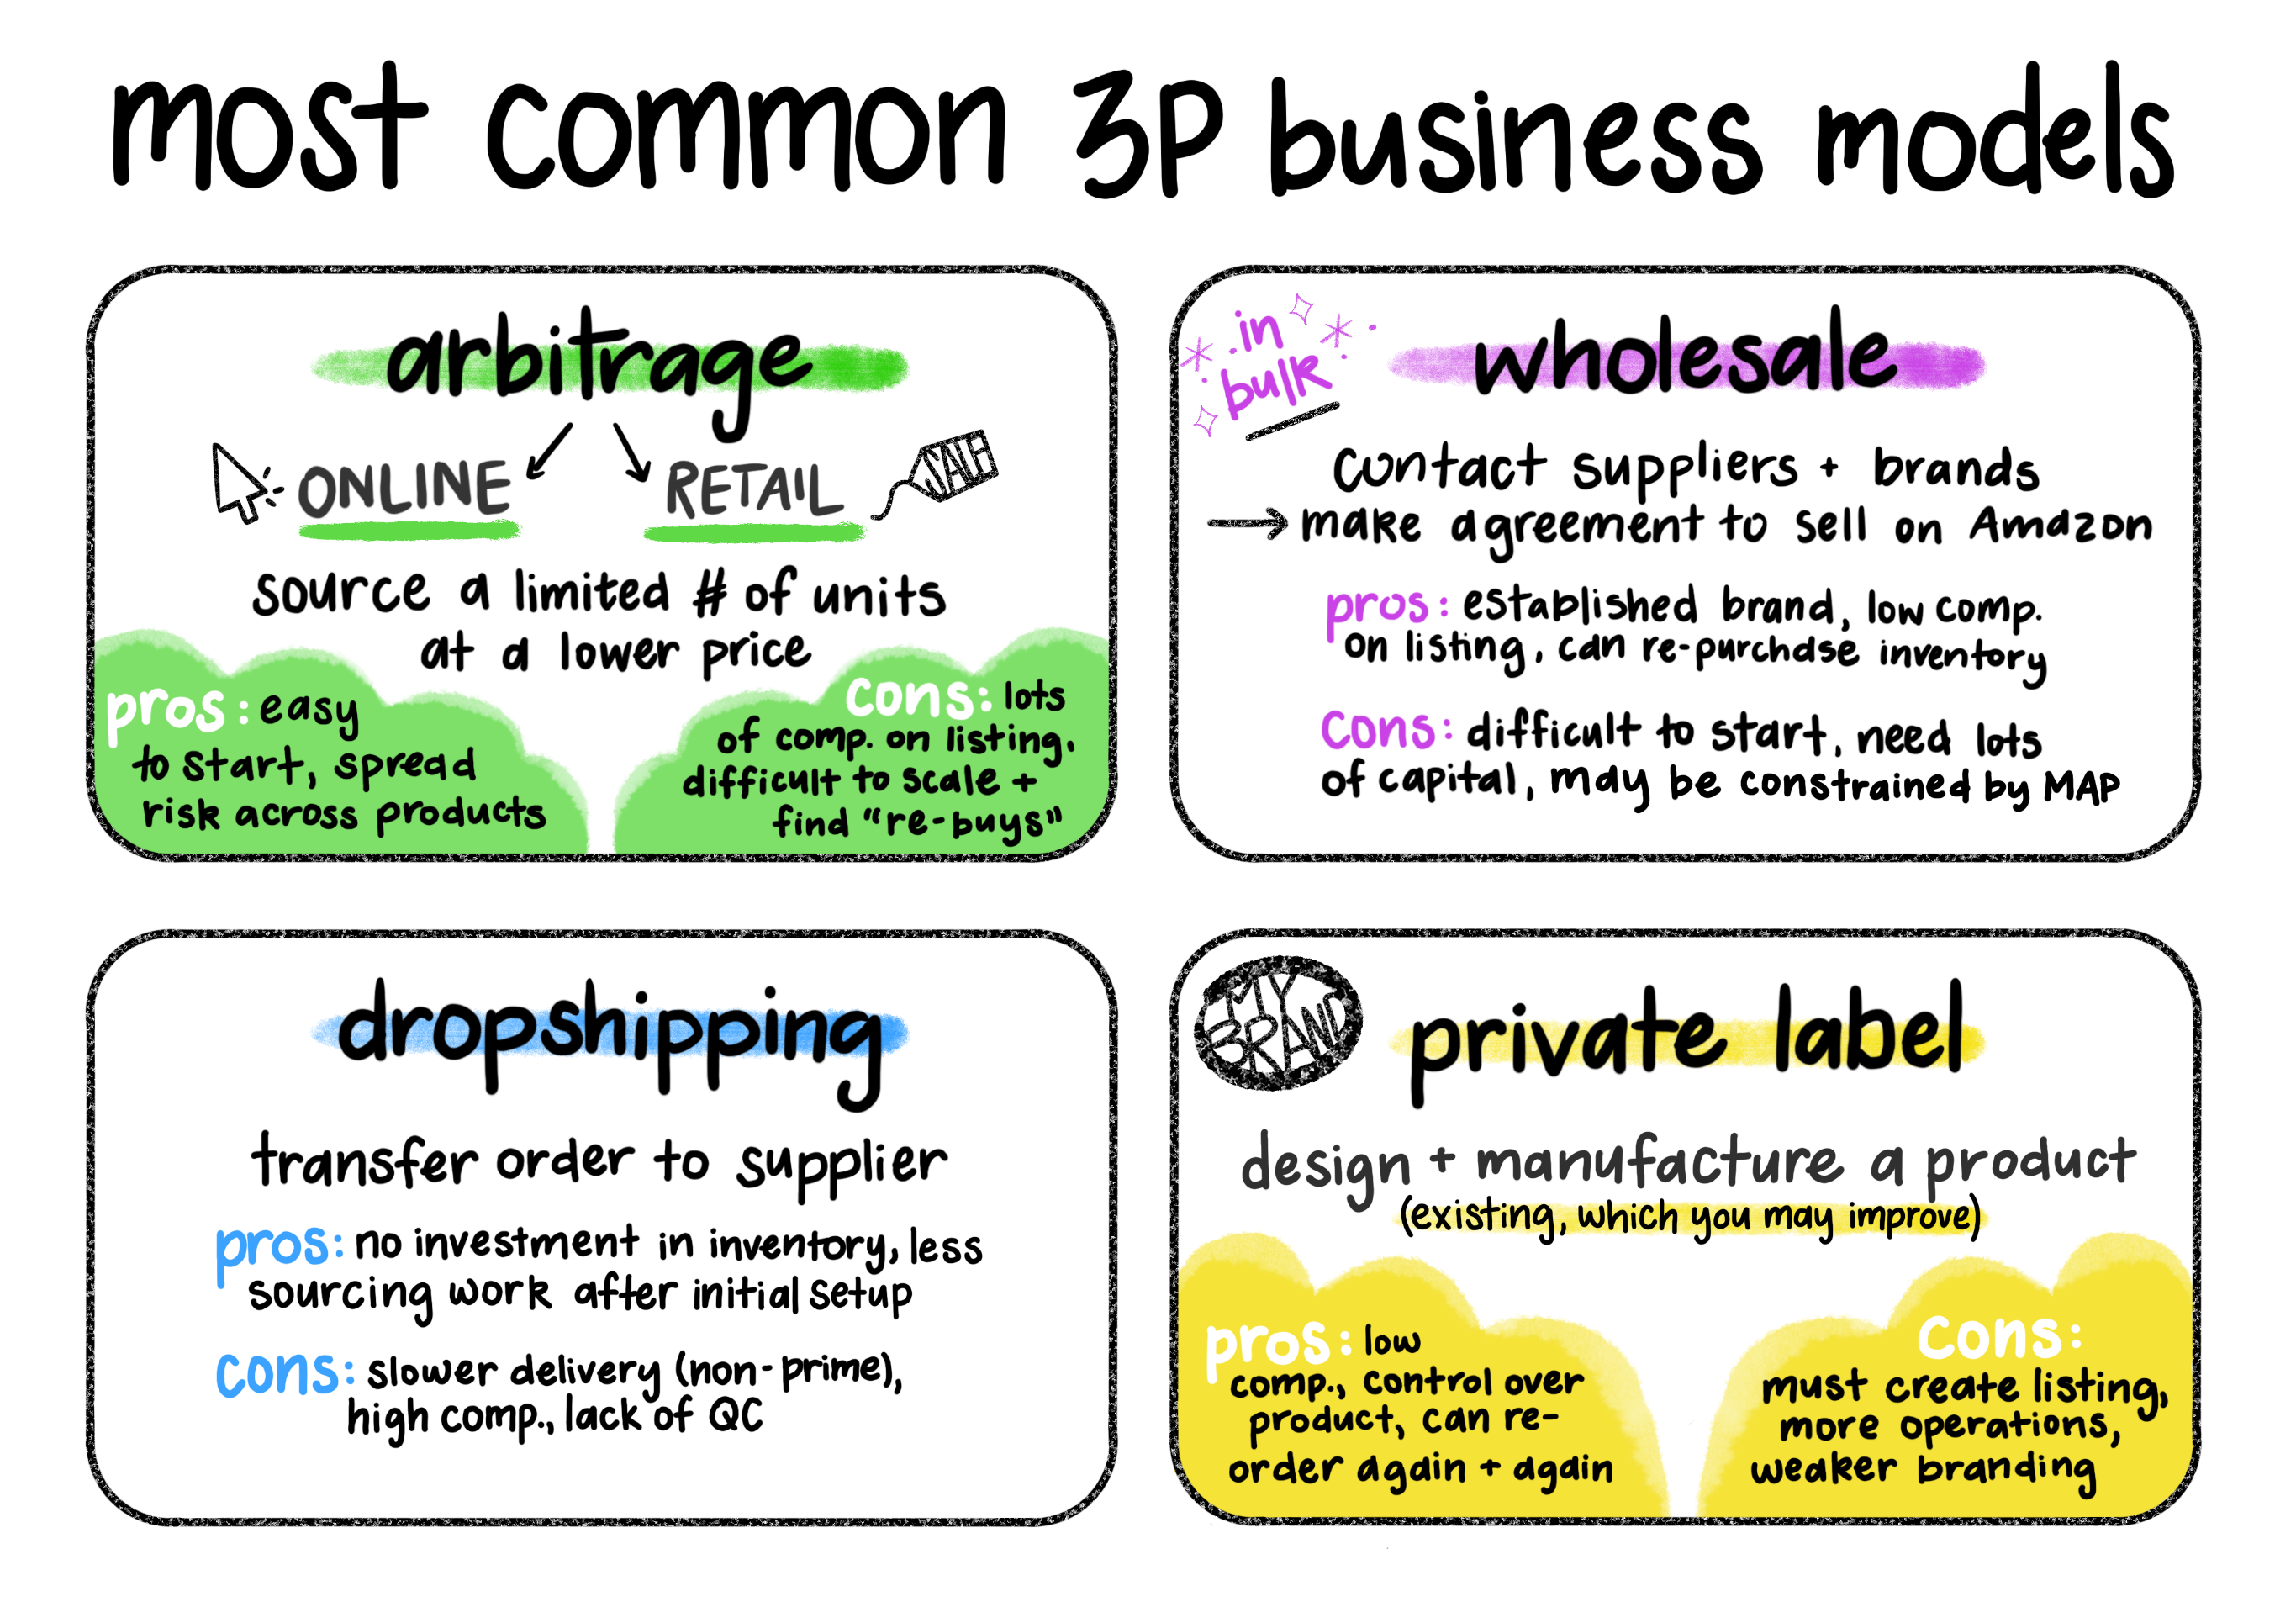 most common 3P business models
arbitrage
ONLINE
RETAIL
SALE
source a limited # of units
at a lower price
pros: easy
to start, spread
risk across products
cons: lots
of comp. on listing,
difficult to scale +
find "re-buys"
in
bulk
wholesale
contact suppliers + brands
→ make agreement to sell on Amazon
pros: established brand, low comp.
on listing, can re-purchase inventory
cons: difficult to start, need lots
of capital, may be constrained by MAP
dropshipping
transfer order to supplier
pros: no investment in inventory, less
sourcing work after initial setup
cons: slower delivery (non-prime),
high comp., lack of QC
MY
BRAND
private label
design + manufacture a product
(existing, which you may improve)
pros: low
comp., control over
product, can re-
order again + again
cons:
must create listing,
more operations,
weaker branding